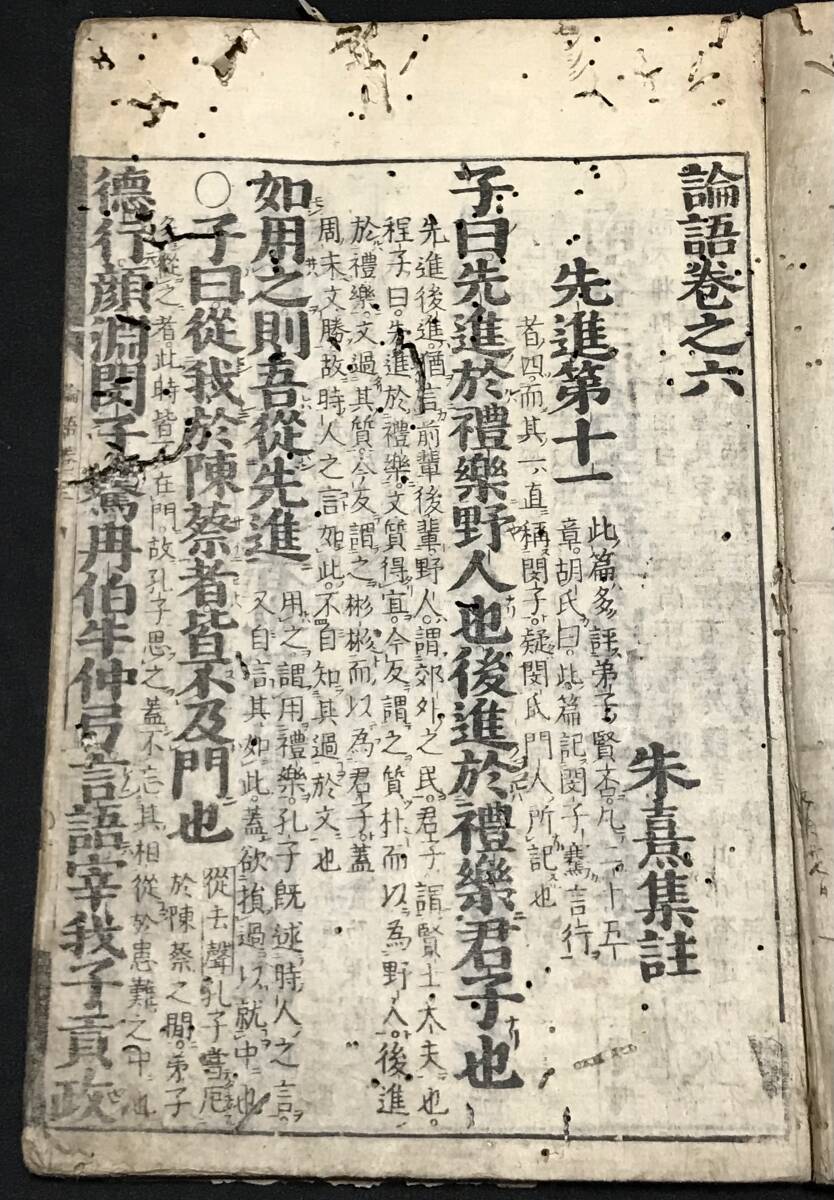 論語卷之六
朱熹集註
先進第十一
此篇多評弟子賢否凡二十五
章胡氏曰此篇記閔子騫言行
者四而其一直稱閔子疑閔氏門人所記也
子曰先進於禮樂野人也後進於禮樂君子也
先進後進猶言前輩後輩野人謂郊外之民君子謂賢士大夫也
程子曰先進於禮樂文質得宜今反謂之質朴而以為野人後進
於禮樂文過其質今反謂之彬彬而以為君子蓋
周末文勝故時人之言如此不自知其過於文也
如用之則吾從先進
用之謂用禮樂孔子既述時人之言
又自言其如此蓋欲損過以就中也
○子曰從我於陳蔡者皆不及門也
從去聲孔子嘗厄
於陳蔡之間弟子
多從之者此時皆不在門故孔子思之蓋不忘其相從於患難之中也
德行顏淵閔子騫冉伯牛仲弓言語宰我子貢政